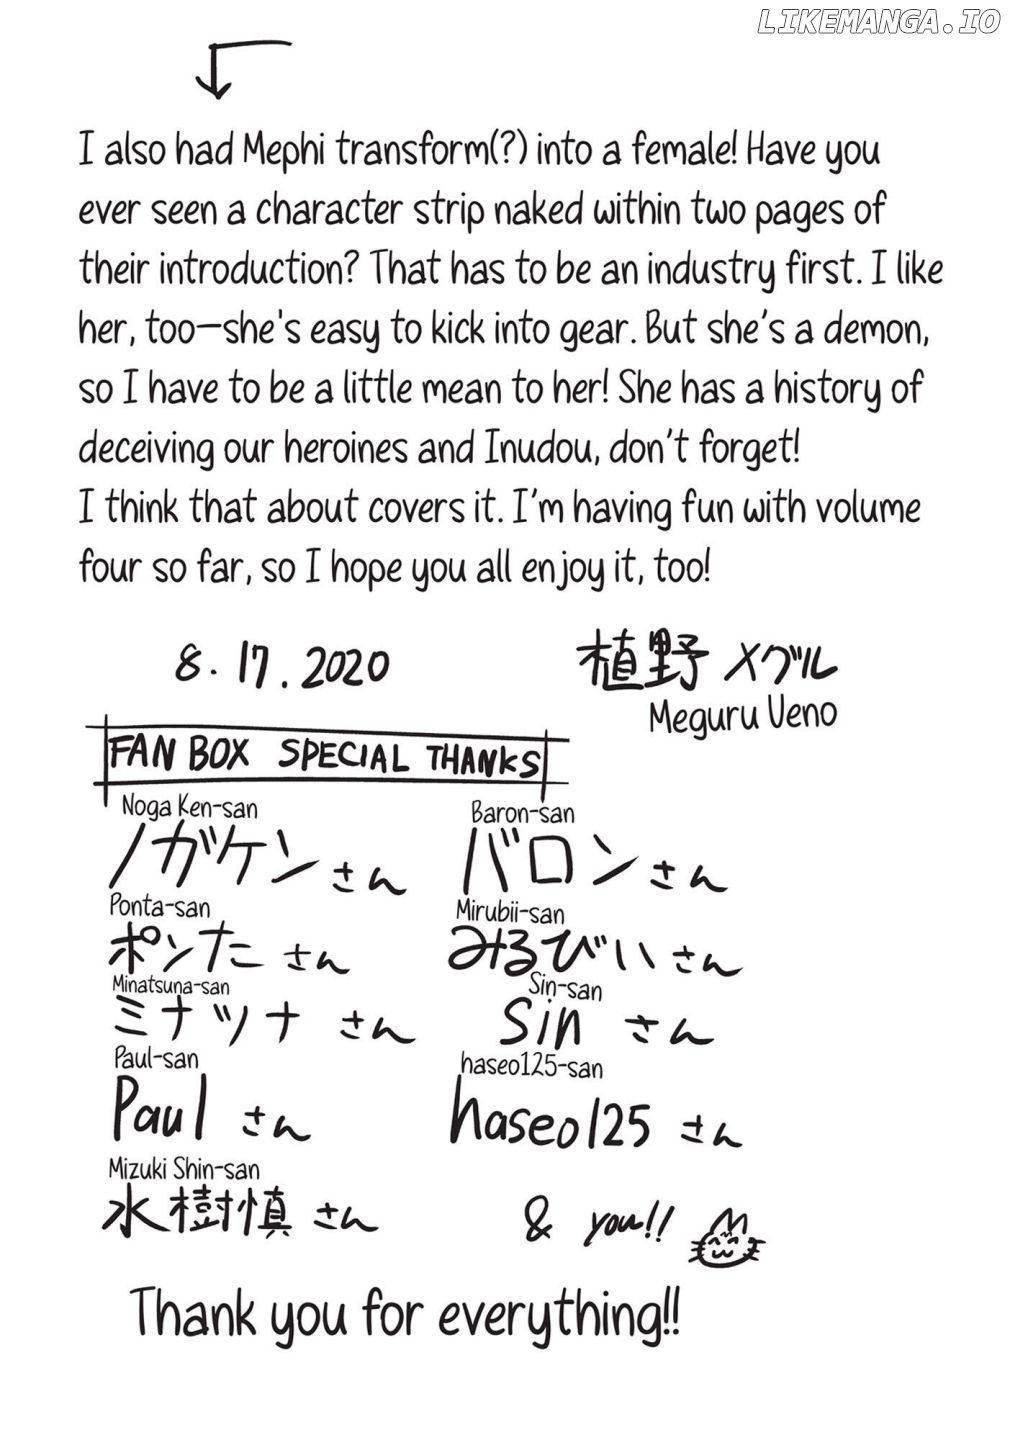 LIKEMANGA.IO
I also had Mephi transform(?) into a female! Have you
ever seen a character strip naked within two pages of
their introduction? That has to be an industry first. I like
her, too—she's easy to kick into gear. But she's a demon,
so I have to be a little mean to her! She has a history of
deceiving our heroines and Inudou, don't forget!
I think that about covers it. I'm having fun with volume
four so far, so I hope you all enjoy it, too!
8.17.2020
植野メグル
Meguru Ueno
FAN BOX SPECIAL THANKS
Noga Ken-san
ノガケンさん
Baron-san
バロンさん
Ponta-san
ポンたさん
Mirubii-san
みるびいさん
Minatsuna-san
ミナツナさん
Sin-san
Sinさん
Paul-san
Paulさん
haseo125-san
haseo125さん
Mizuki Shin-san
水樹慎さん
& you!!
Thank you for everything!!